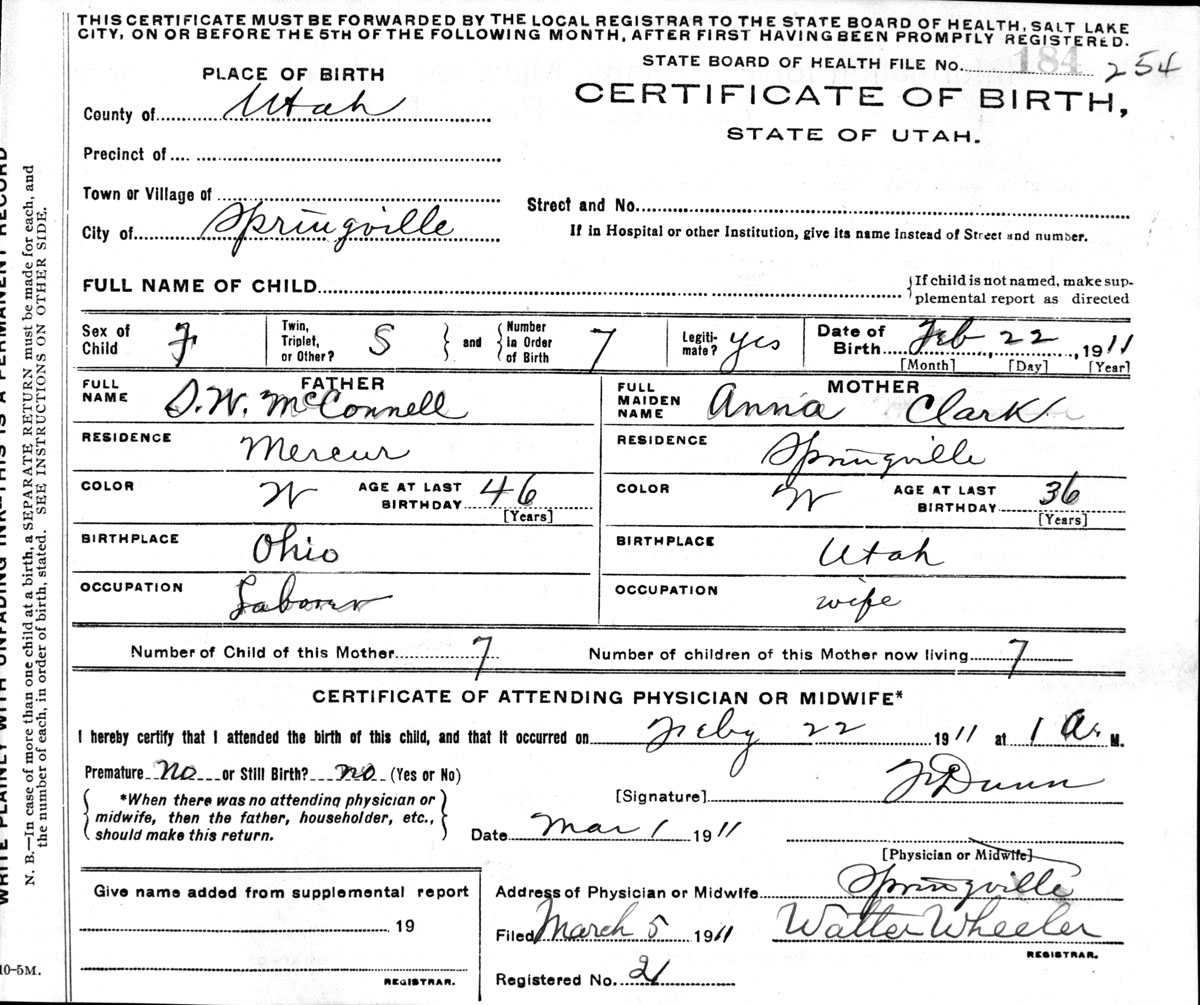 THIS CERTIFICATE MUST BE FORWARDED BY THE LOCAL REGISTRAR TO THE STATE BOARD OF HEALTH, SALT LAKE
CITY, ON OR BEFORE THE 5TH OF THE FOLLOWING MONTH, AFTER FIRST HAVING BEEN PROMPTLY REGISTERED.
STATE BOARD OF HEALTH FILE NO. 184 254
PLACE OF BIRTH
CERTIFICATE OF BIRTH,
STATE OF UTAH.
County of Utah
Precinct of
Town or Village of
Street and No.
City of Springville
If in Hospital or other Institution, give its name instead of Street and number.
FULL NAME OF CHILD
{If child is not named, make sup-
plemental report as directed
Sex of Child F
Twin, Triplet, or Other? S } and { Number in Order of Birth 7
Legiti- mate? yes
Date of Birth Feb 22, 1911
[Month] [Day] [Year]
FATHER
FULL NAME D. W. McConnell
MOTHER
FULL MAIDEN NAME Annia Clark
RESIDENCE Mercur
RESIDENCE Springville
COLOR W AGE AT LAST BIRTHDAY 46 [Years]
COLOR W AGE AT LAST BIRTHDAY 36 [Years]
BIRTHPLACE Ohio
BIRTHPLACE Utah
OCCUPATION Laborer
OCCUPATION wife
Number of Child of this Mother 7 Number of children of this Mother now living 7
CERTIFICATE OF ATTENDING PHYSICIAN OR MIDWIFE*
I hereby certify that I attended the birth of this child, and that it occurred on Feby 22 1911 at 1 A. M.
Premature No or Still Birth? no (Yes or No)
{*When there was no attending physician or
midwife, then the father, householder, etc.,
should make this return.}
[Signature] F Dunn
Date Mar 1 1911
[Physician or Midwife]
Give name added from supplemental report
19
REGISTRAR.
Address of Physician or Midwife Springville
Filed March 5 1911 Walter Wheeler
REGISTRAR.
Registered No. 21
WRITE PLAINLY WITH UNFADING INK—THIS IS A PERMANENT RECORD
N. B.—In case of more than one child at a birth, a SEPARATE RETURN must be made for each, and
the number of each, in order of birth, stated. SEE INSTRUCTIONS ON OTHER SIDE.
10-5M.